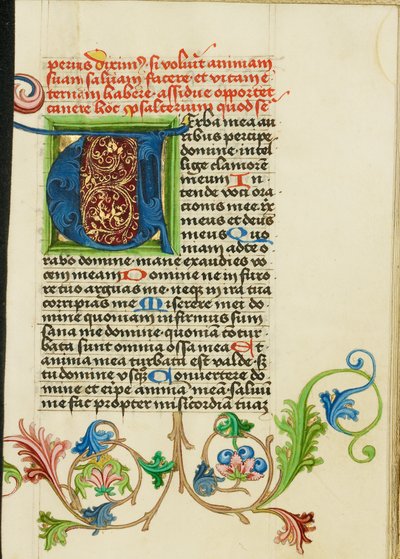 perius diximꝰ. si voluit animam
suam saluam facere et vitam e
ternam habere. assidue oportet
canere hoc psalterium quod se
Verba mea au
ribus percipe
domine. intel
lige clamorem
meum In
tende voci ora
cionis mee. rx
meus et deus
meus Quo
niam ad te o
rabo domine. mane exaudies vo
cem meam Domine ne in furo
re tuo arguas me. neqꝫ in ira tua
corripias me Miserere mei do
mine quoniam infirmus sum
sana me domine quoniā cōtur
bata sunt omnia ossa mea Et
anima mea turbata est valde. sꝫ
tu domine vsqꝫ Conuertere do
mine et eripe animā mea. saluū
me fac propter misericordiā tuaꝫ